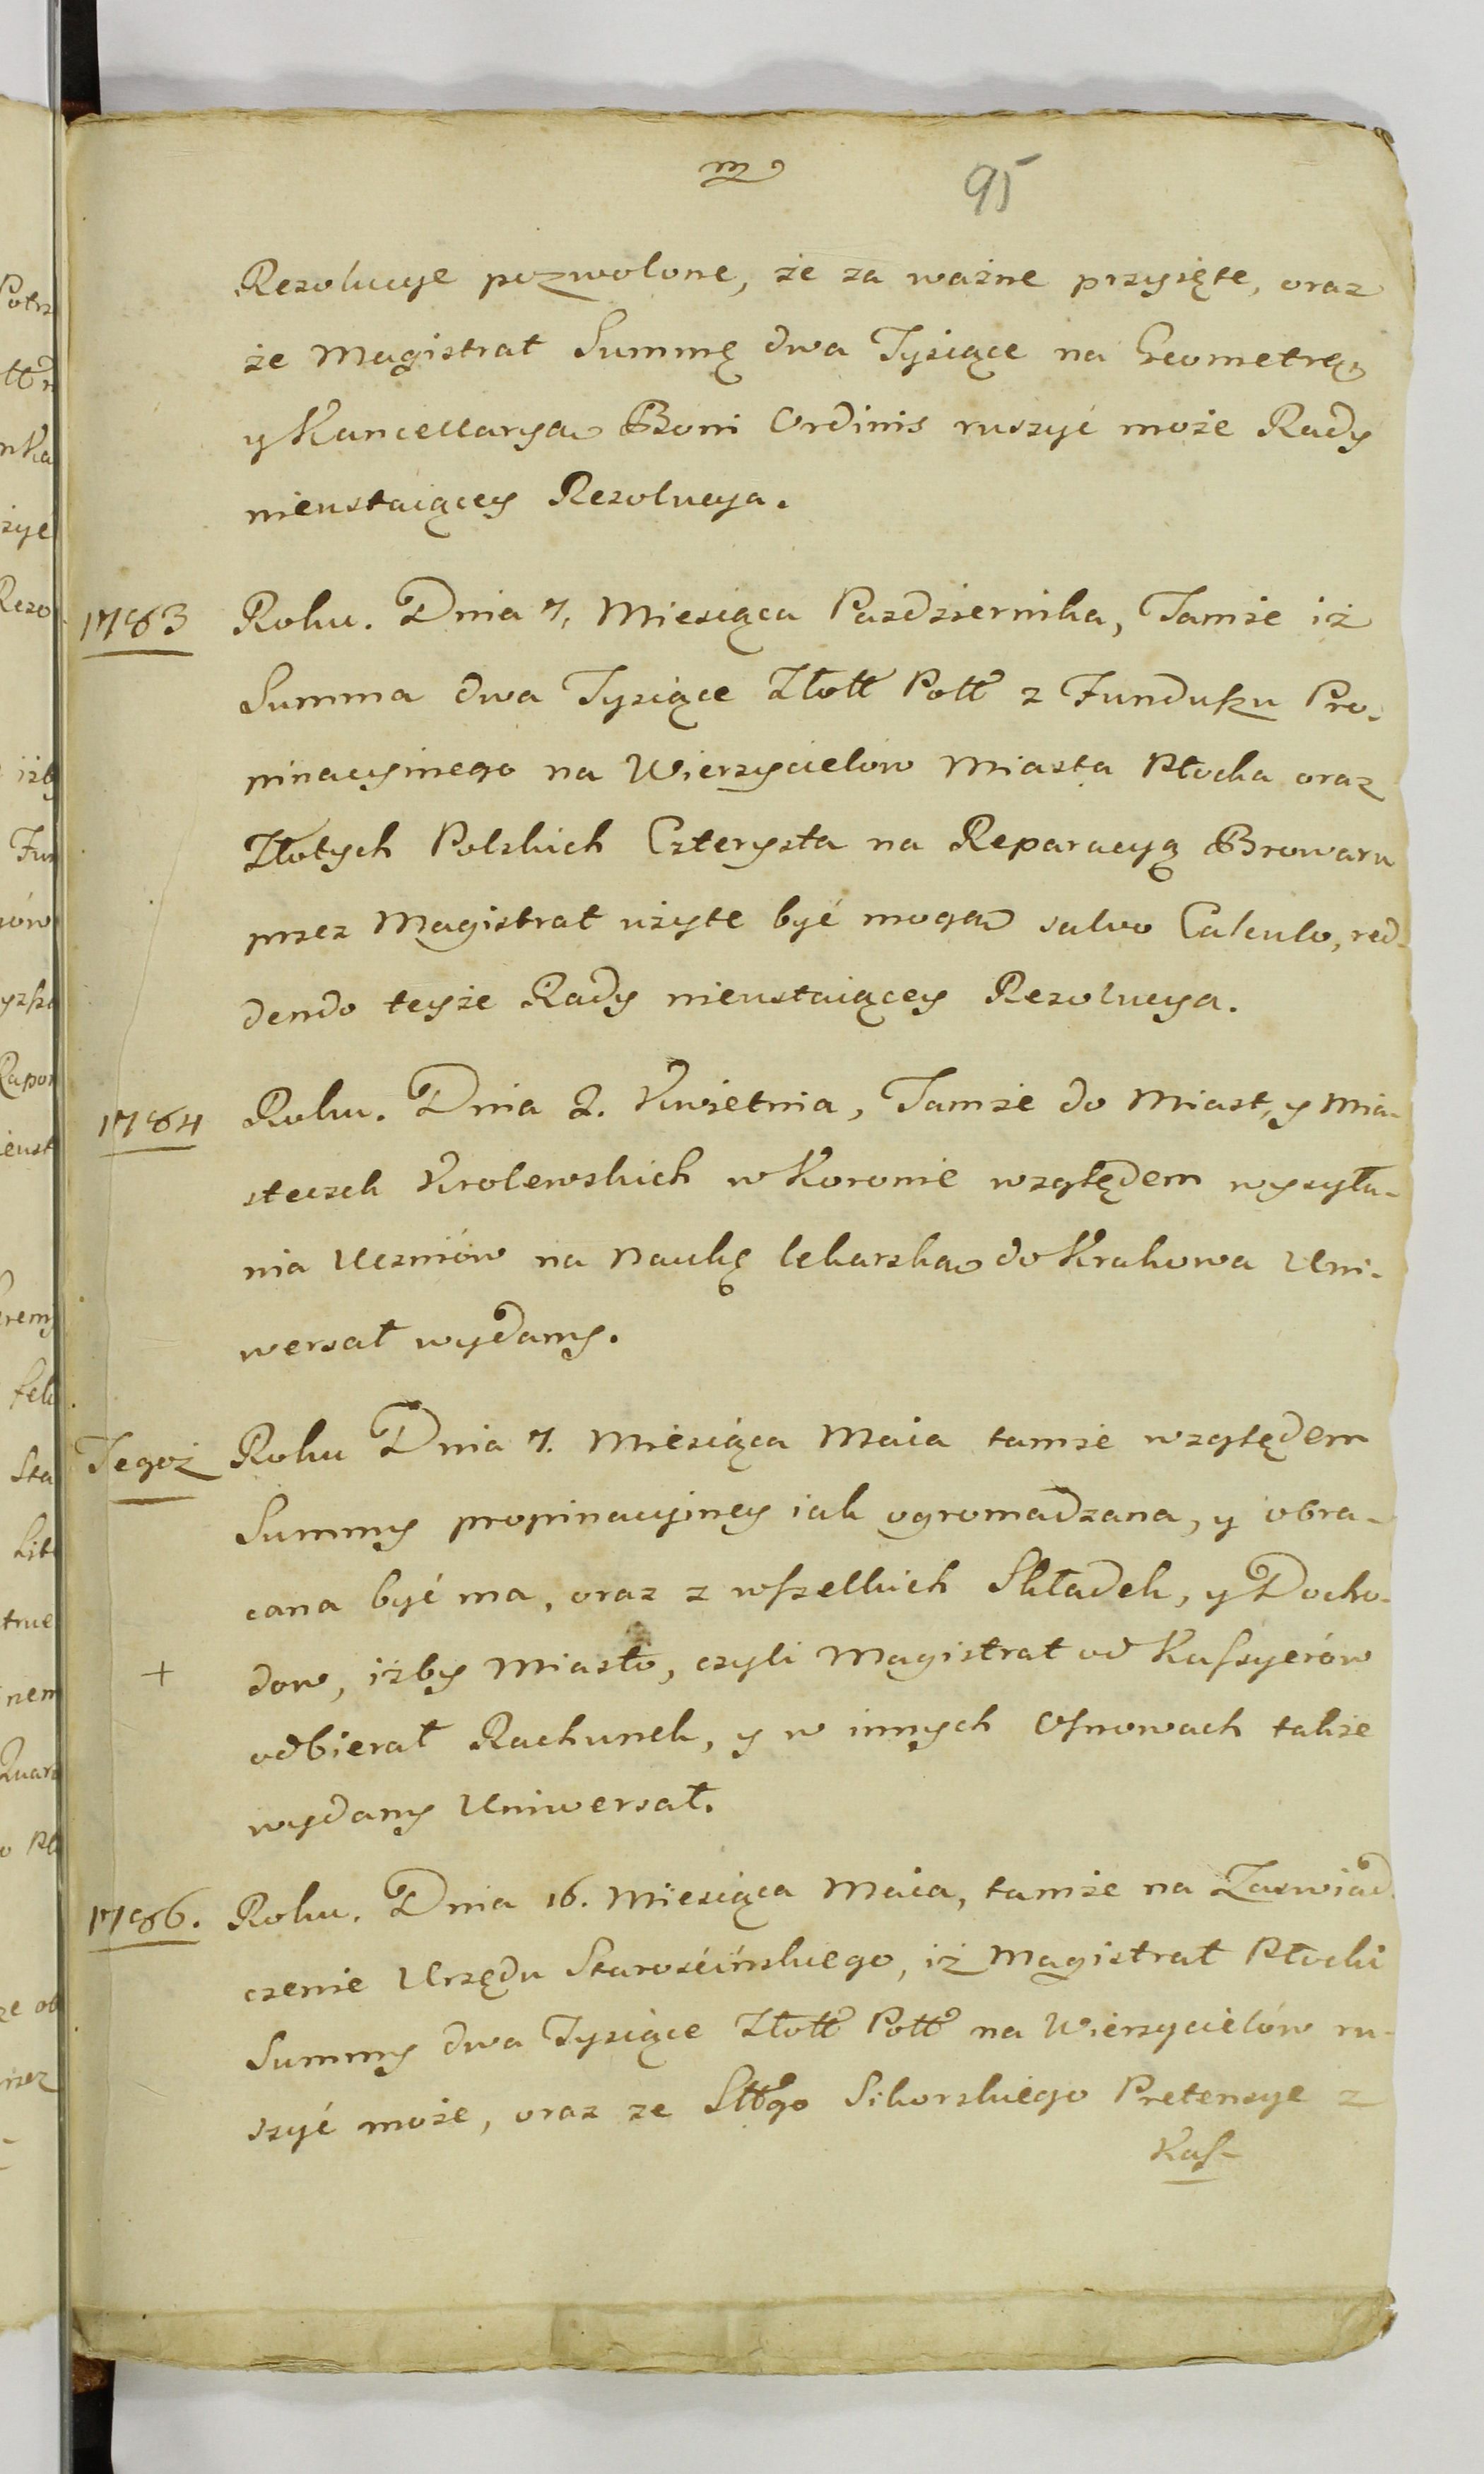 95
Rezolucye pozwolone, że za ważne przyięte, oraz
że Magistrat Summę dwa Tysiące na Geometrę,
y Kancellaryą Boni Ordinis ruszyć może Rady
nieustaiącey Rezolucya.
1783 Roku. Dnia 7. Miesiąca Pazdziernika, Tamże iż
Summa dwa Tysiące Złott Poll z Funduszu Pro-
pinacyinego na Wierzycielów Miasta Płocka oraz
Złotych Polskich Czterysta na Reparacyą Browaru
przez Magistrat użyte być mogą salvo Calculo, red-
dendo teyże Rady nieustaiącey Rezolucya.
1784 Roku. Dnia 2. Kwietnia, Tamże do Miast, y Mia-
steczek Krolewskich w Koronie względem wysyła-
nia Uczniów na Naukę lekarską do Krakowa Uni-
wersał wydany.
Tegoż Roku Dnia 7. Miesiąca Maia tamże względem
Summy propinacyiney iak ogromadzana, y obra-
cana być ma, oraz z wszelkich Składek, y Docho-
+ dow, iżby Miasto, czyli Magistrat od Kassyerów
odbierał Rachunek, y w innych Osnowach także
wydany Uniwersał.
1786. Roku. Dnia 16. Miesiąca Maia, tamże na Zaswiad-
czenie Urzędu Starościńskiego, iż Magistrat Płocki
Summy dwa Tysiące Złott Poll na Wierzycielów ru-
szyć może, oraz ze Sikorskiego Pretensye z
Kas-